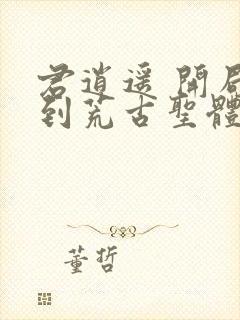 君逍遥 開局
到荒古聖體
董哲